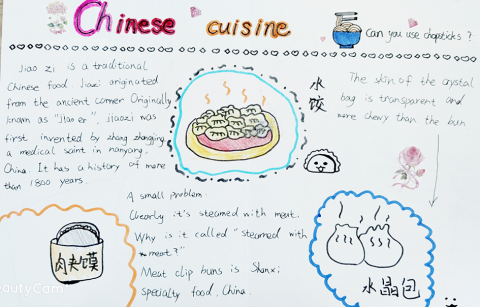 Chinese cuisine
Can you use chopsticks ?
Jiao zi is a traditional
Chinese food. Jiaozi originated
from the ancient corner Originally
known as "Jiao er". jiaozi was
first invented by zhang zhongjing
a medical saint in nanyang.
China. It has a history of more
than 1800 years.
水饺
The skin of the crystal
bag is transparent and
more chewy than the bun
A small problem.
Clearly it's steamed with meat.
Why is it called "steamed with
meat?"
Meat clip buns is Shanxi
specialty food, China.
肉夹馍
水晶包
autyCam